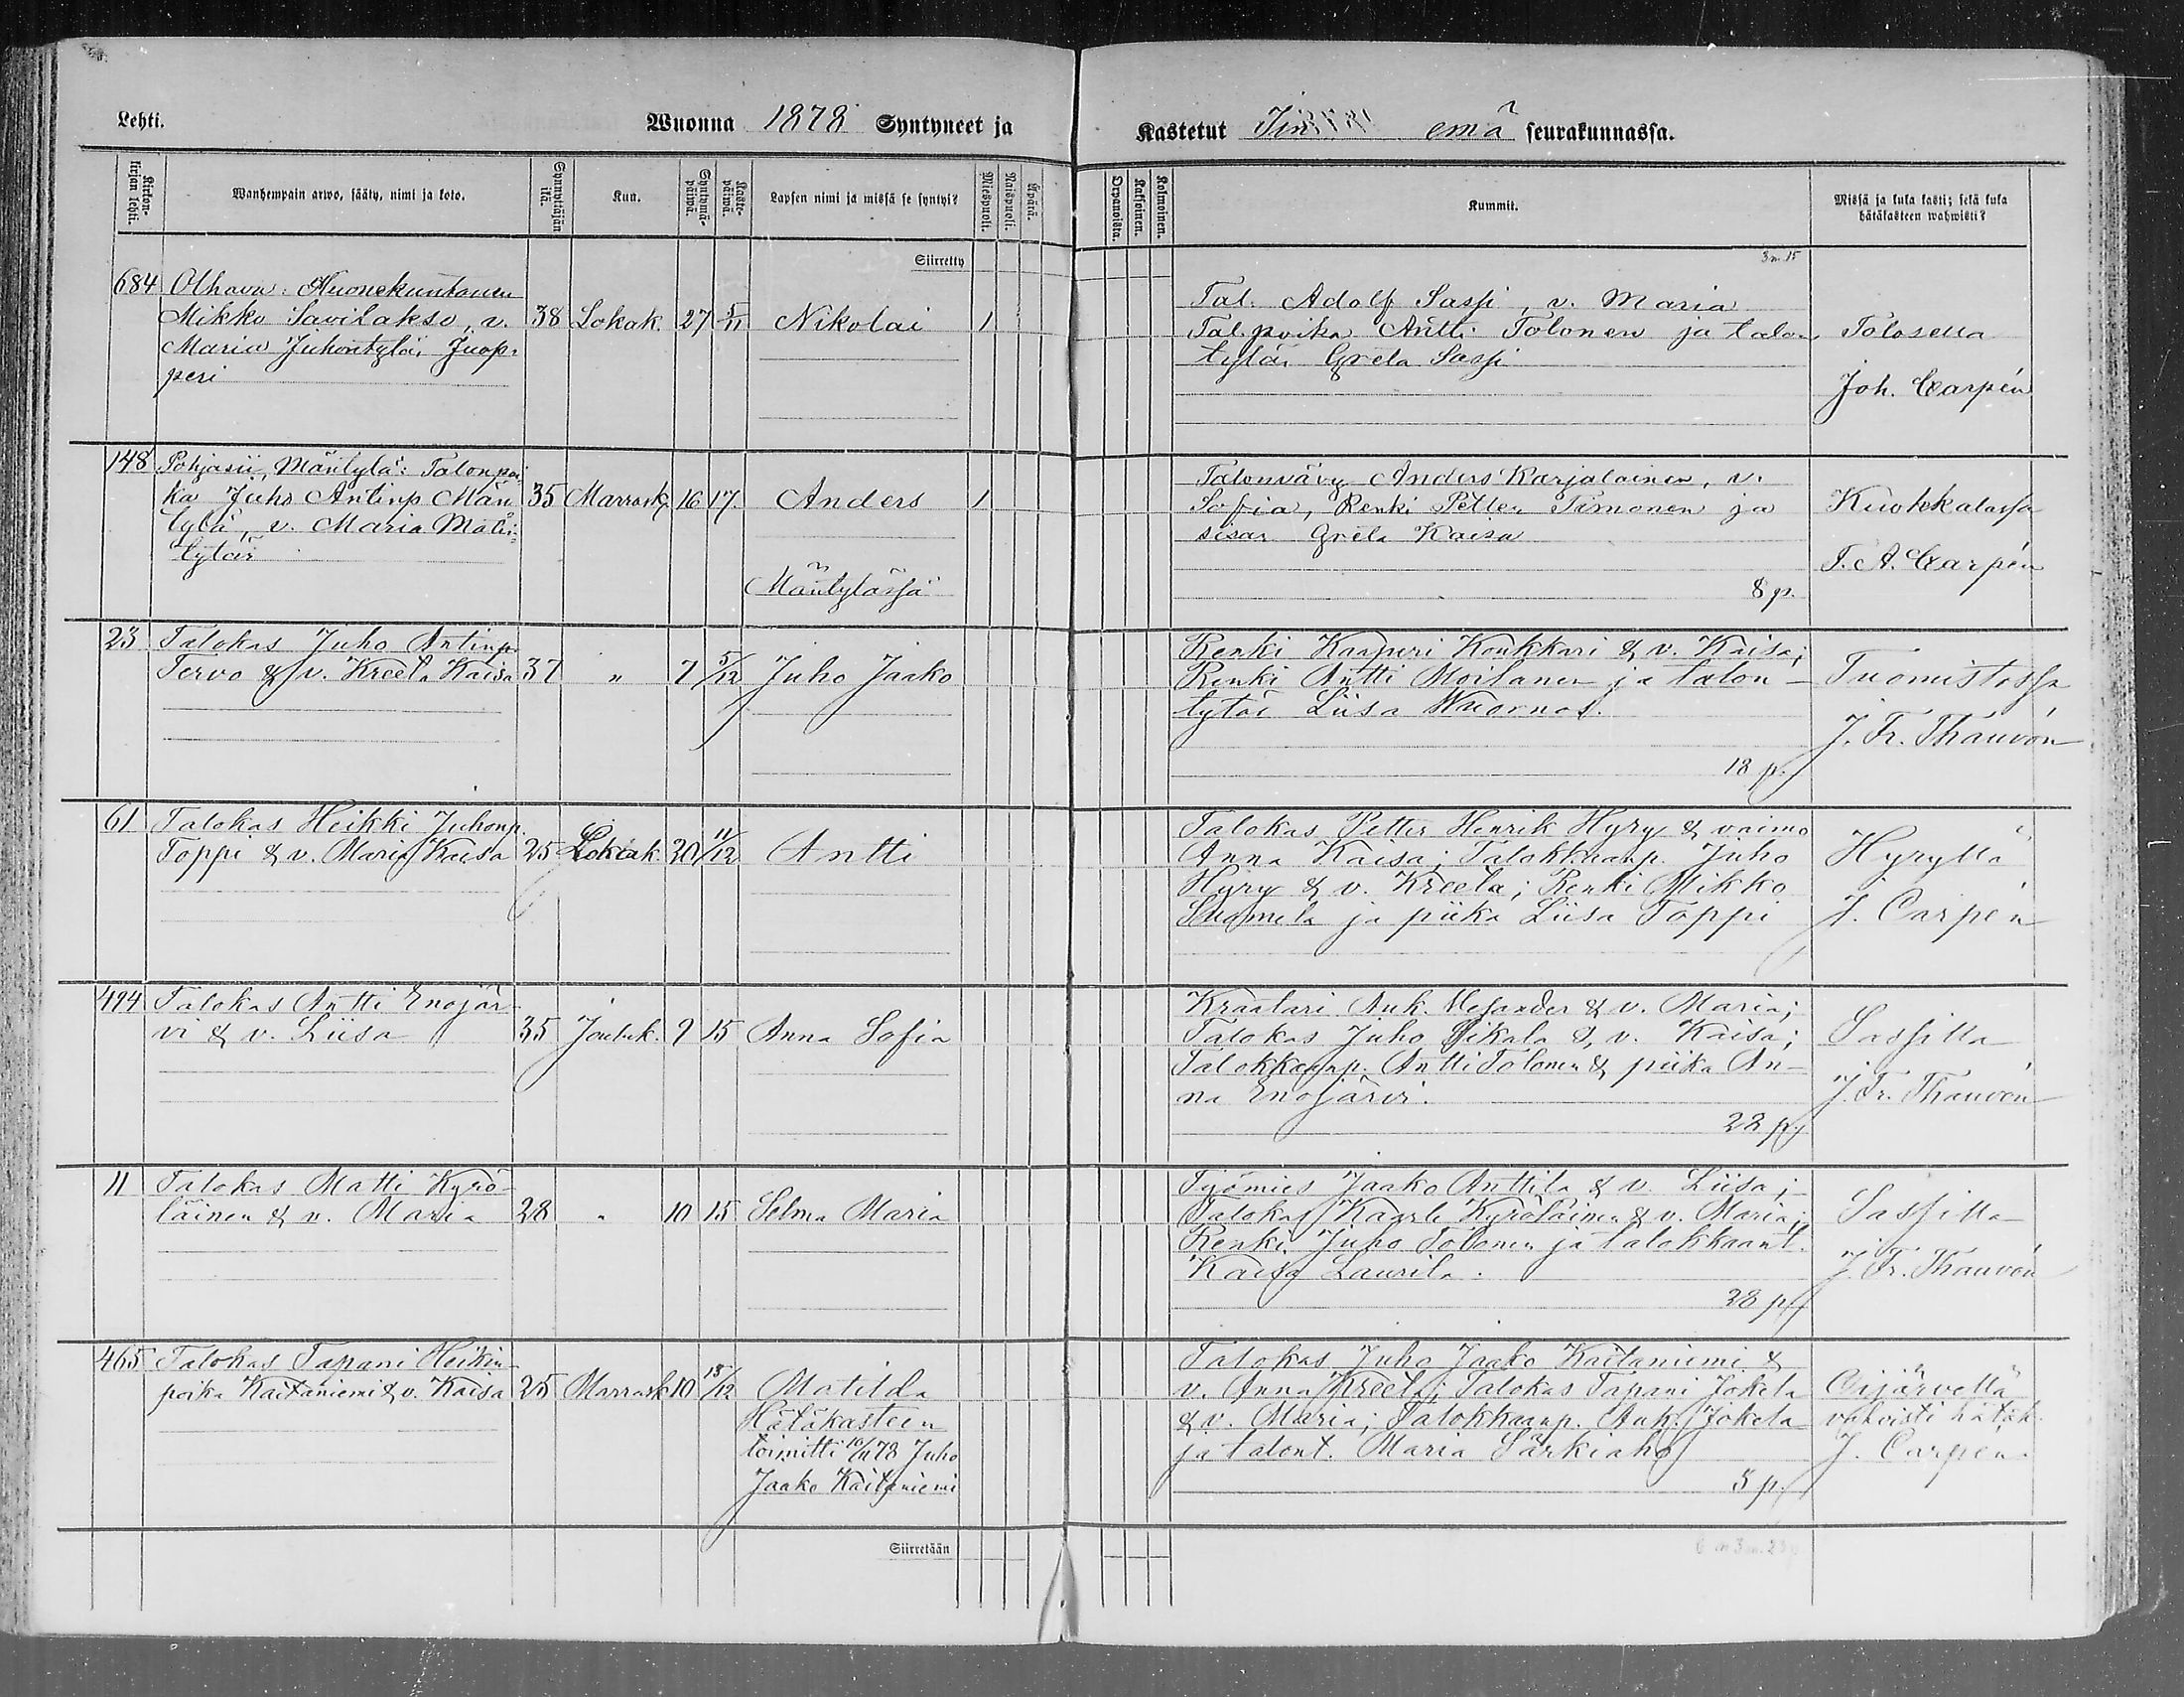 Lehti.
Wuonna 1878 Syntyneet ja
Kastetut Iin emä seurakunnassa.
Kirkon-kirjan lehti.
Wanhempain arwo, sääty, nimi ja koto.
Synnyttäjän ikä.
Kuu.
Syntymä-päiwä.
Kaste-päiwä.
Lapsen nimi ja missä se syntyi?
Miespuoli.
Naispuoli.
Äpärä.
Orpanoista.
Kaksoinen.
Kolmoinen.
Kummit.
Missä ja kuka kasti; sekä kuka
hätäkasteen wahwisti?
Siirretty
684 Olhava: Huonekuntainen
Mikko Savilakso, v. 38 Lokak. 27 5/11 Nikolai 1
Maria Juhontytär Juop-
peri
Tal. Adolf Sassi, v. Maria
Tal.poika Antti Tolonen ja talon
tytär Greta Sassi
Tolosella
Joh. Carpén
148 Pohjasii, Mäntylä: Talonpoi-
ka Juho Antinp Män 35 Marrask. 16 17. Anders 1
tylä, v. Maria Matin
tytär
Mäntylässä
Talonvävy Anders Karjalainen, v.
Sofia, Renki Petter Timonen ja
sisar Greta Kaisa
8 p.
Kuokkalassa
T. A. Carpén
23 Talokas Juho Antinp.
Tervo & v. Kreeta Kaisa 37 " 7 5/12 Juho Jaako
Renki Kaapuri Koukkari & v. Kaisa;
Renki Antti Moilanen ja talon-
tytär Liisa Wuornos.
18 p.
Tuomistossa
J. Fr. Thauvón
61 Talokas Heikki Juhonp.
Toppi & v. Maria Kaisa 25 Lokak. 20 11/12 Antti
Talokas Petter Henrik Hyry & vaimo
Anna Kaisa; Talokkaanp. Juho
Hyry & v. Kreeta; Renki Mikko
Suomela ja piika Liisa Toppi
Hyryllä
J. Carpén
494 Talokas Antti Enojär-
vi & v. Liisa 35 Jouluk. 9 15 Anna Sofia
Kraatari Auk. Mesander & v. Maria;
Talokas Juho Pikala & v. Kaisa;
Talokkaanp. Antti Tolonen & piika An-
na Enojärvi.
22 p.
Sassilla
J. Fr. Thauvón
11 Talokas Matti Kyrö-
läinen & v. Maria 28 " 10 15 Selma Maria
Työmies Jaako Anttila & v. Liisa;
Talokas Kaarle Kyröläinen & v. Maria;
Renki Juho Tolonen ja talokkaant.
Kaisa Laurila.
28 p.
Sassilla
J. Fr. Thauvón
465 Talokas Tapani Heikin-
poika Kaitaniemi & v. Kaisa 25 Marrask 10 18/12 Matilda
Hätäkasteen
toimitti 10/11 78 Juho
Jaako Kaitaniemi
Talokas Juho Jaako Kaitaniemi &
v. Anna Kreeta; Talokas Tapani Jokela
& v. Maria; Talokkaanp. Auk. Jokela
ja talont. Maria Särkiaho
5 p.
Oijärvellä
vahvisti hätäk.
J. Carpén.
Siirretään